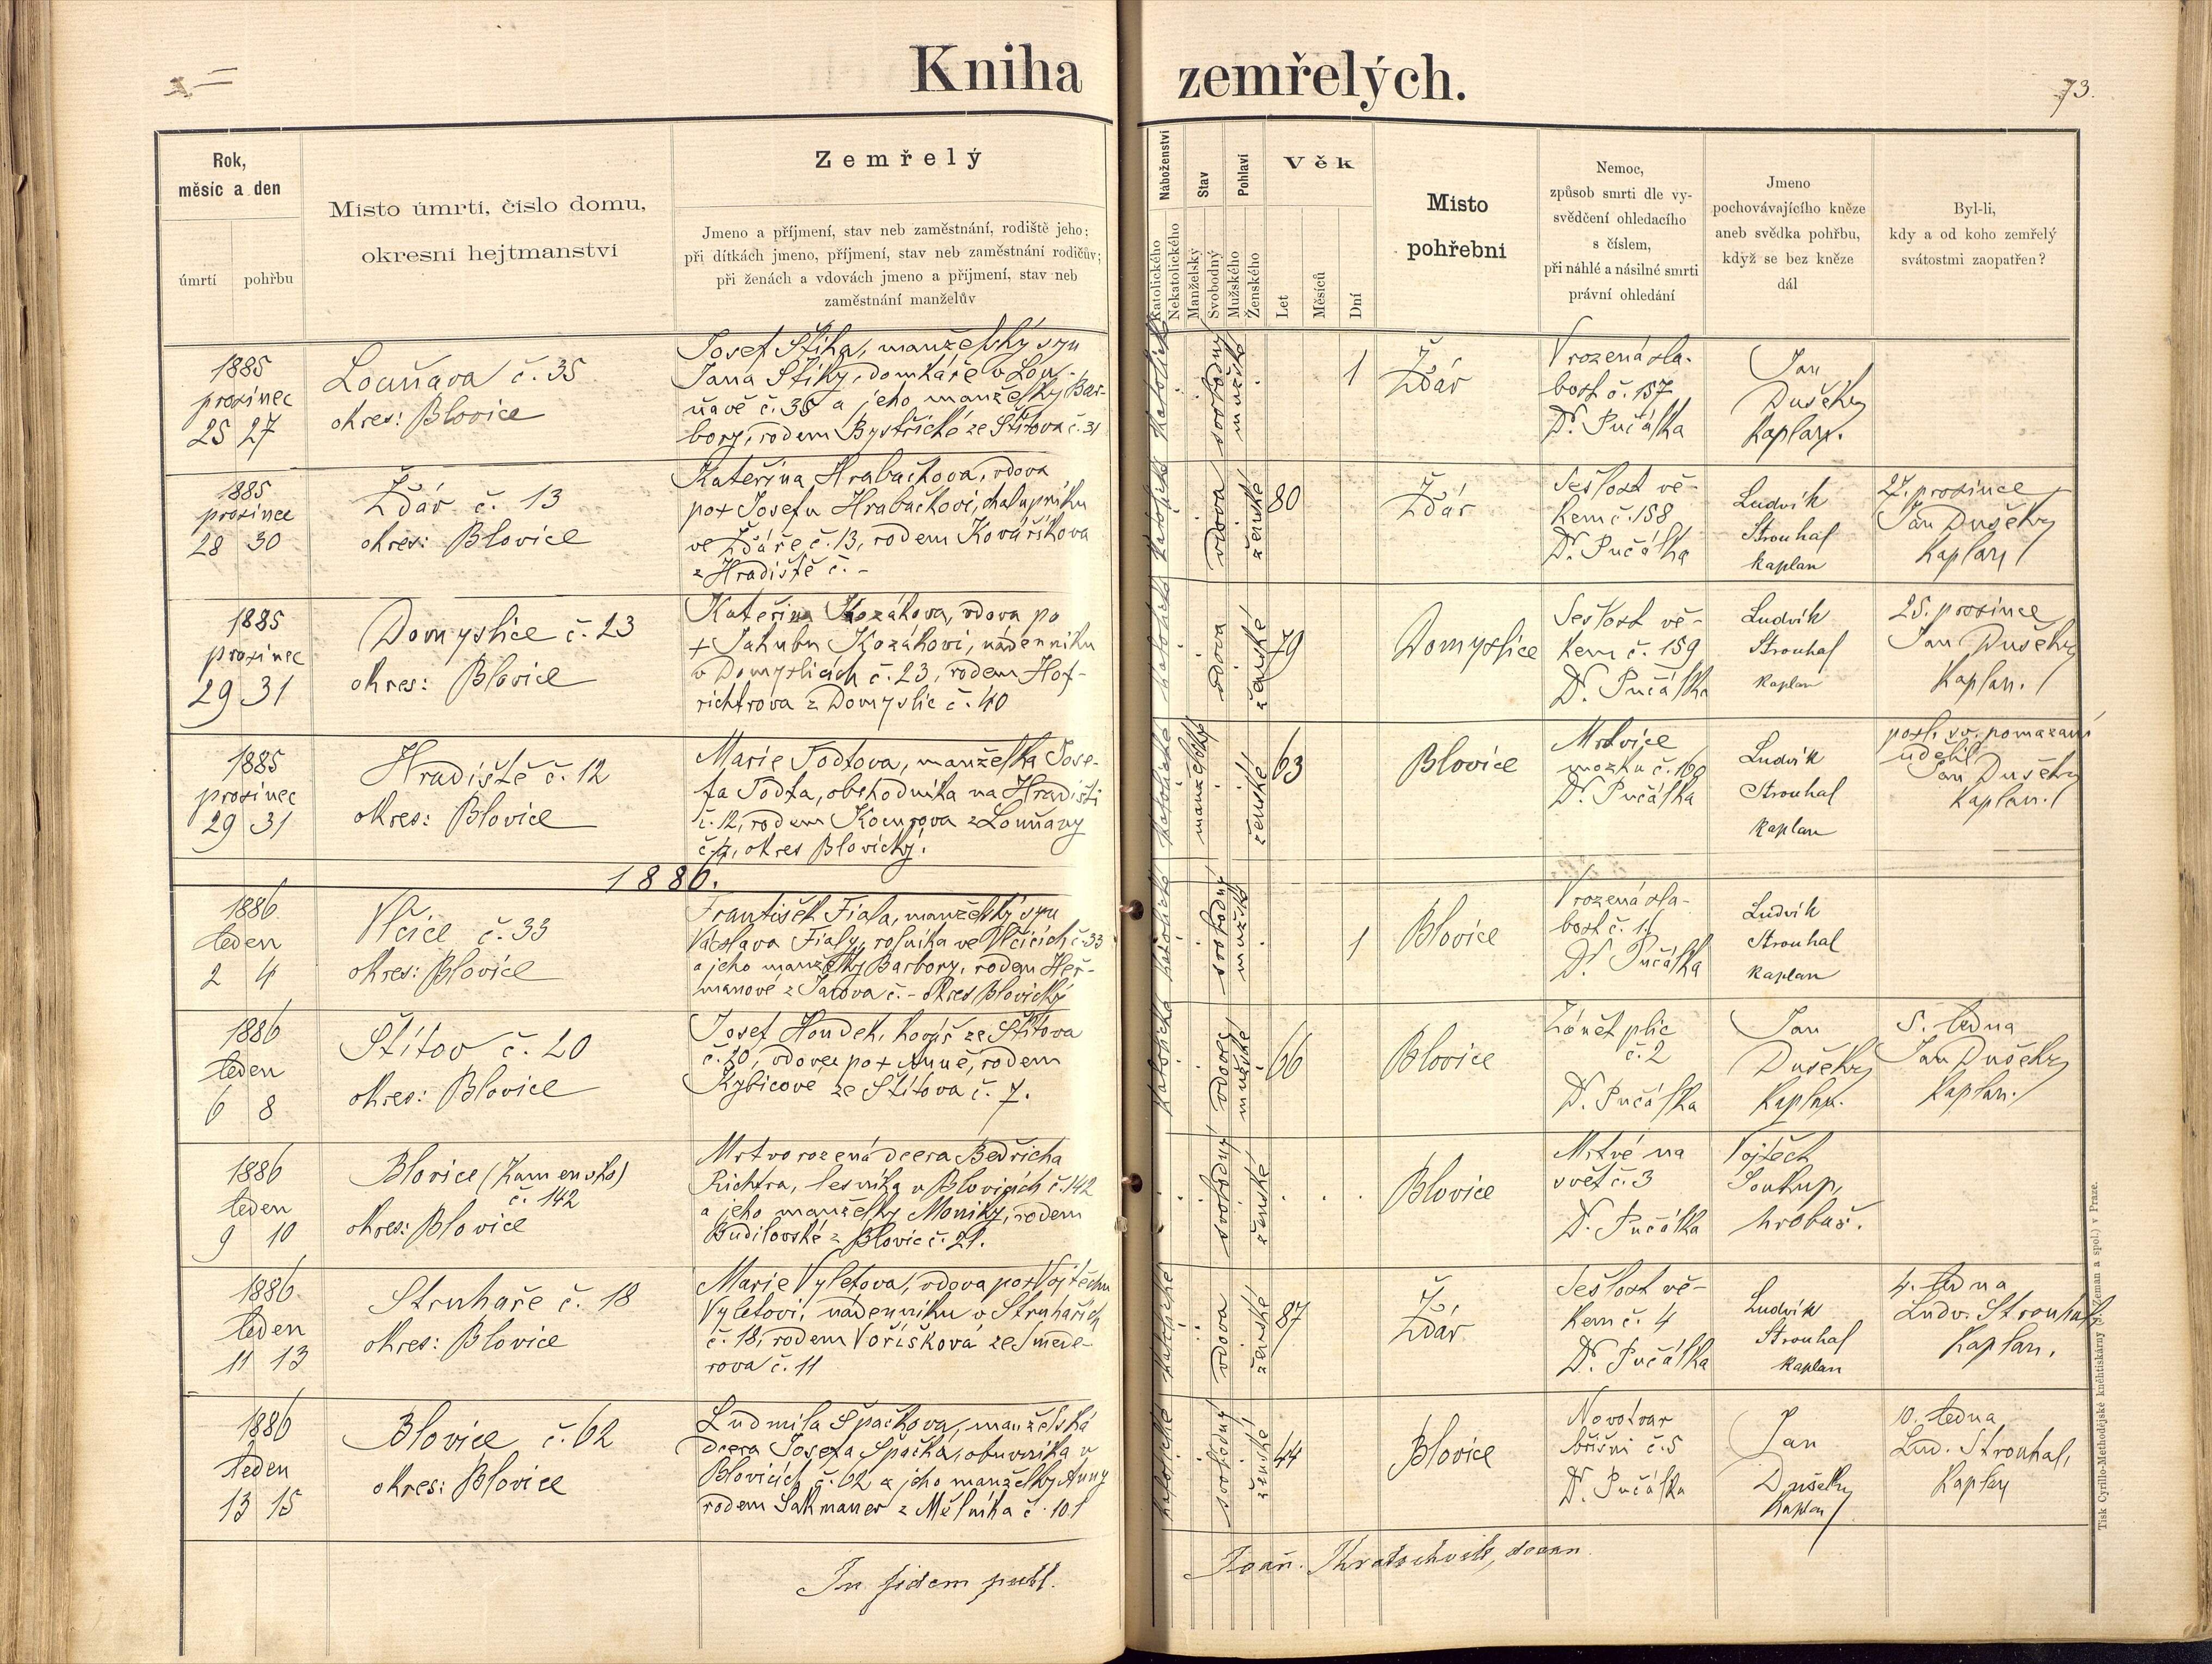 Kniha zemřelých.
73.
Rok,
měsíc a den
úmrtí
pohřbu
Místo úmrtí, číslo domu,
okresní hejtmanství
Zemřelý
Jmeno a příjmení, stav neb zaměstnání, rodiště jeho;
při dítkách jmeno, příjmení, stav neb zaměstnání rodičův;
při ženách a vdovách jmeno a příjmení, stav neb
zaměstnání manželův
Náboženství
Katolického
Nekatolického
Stav
Manželský
Svobodný
Pohlaví
Mužského
Ženského
Věk
Let
Měsíců
Dní
Místo
pohřební
Nemoc,
způsob smrti dle vy-
svědčení ohledacího
s číslem,
při náhlé a násilné smrti
právní ohledání
Jmeno
pochovávajícího kněze
aneb svědka pohřbu,
když se bez kněze
dál
Byl-li,
kdy a od koho zemřelý
svátostmi zaopatřen?
1885
prosinec
25 27
Louňava č. 35
okres: Blovice
Josef Štiha, manželský syn
Jana Štihy, domkáře v Lou-
ňavě č. 35 a jeho manželky Bar-
bory, rodem Bystřické ze Štítova č. 31
katolické
svobodný
mužské
1
Žďár
Vrozená sla-
bost č. 157
Dr. Pučálka
Jan
Dušek
Kaplan.
1885
prosinec
28 30
Žďár č. 13
okres: Blovice
Kateřina Hrabačkova, vdova
po + Josefu Hrabačkovi, chalupníku
ve Žďáře č. 13, rodem Kovaříkova
z Hradiště č. -
katolické
vdova
ženské
80
Žďár
Sešlost vě-
kem č. 158
Dr. Pučálka
Ludvík
Strouhal
kaplan
27. prosince
Jan Dušek
Kaplan
1885
prosinec
29 31
Domyslice č. 23
okres: Blovice
Kateřina Kozákova, vdova po
+ Jakubu Kozákovi, nádenníku
v Domyslicích č. 23, rodem Hof-
richtrova z Domyslic č. 40
katolické
vdova
ženské
79
Domyslice
Sešlost vě-
kem č. 159
Dr. Pučálka
Ludvík
Strouhal
kaplan
25. prosince
Jan Dušek
Kaplan.
1885
prosinec
29 31
Hradiště č. 12
okres: Blovice
Marie Todtova, manželka Jose-
fa Todta, obchodníka na Hradišti
č. 12, rodem Kocurova z Louňavy
okres Blovický.
katolické
manželský
ženské
63
Blovice
Mrtvice
mozku č. 160
Dr. Pučálka
Ludvík
Strouhal
kaplan
posl. sv. pomazání
udělil
Jan Dušek
Kaplan.
1886.
1886
leden
2 4
Vlčice č. 33
okres: Blovice
František Fiala, manželský syn
Václava Fialy, rolníka ve Vlčicích č. 33
a jeho manželky Barbory, rodem Heř-
manové z Jarova č. - okres Blovický
katolické
svobodný
mužské
1
Blovice
Vrozená sla-
bost č. 1
Dr. Pučálka
Ludvík
Strouhal
kaplan
1886
leden
6 8
Štítov č. 20
okres: Blovice
Josef Houdek, kovář ze Štítova
č. 20, vdovec po + Anně, rodem
Kybicove ze Štítova č. 7.
katolické
vdovec
mužské
66
Blovice
Zánět plic
č. 2
Dr. Pučálka
Jan
Dušek
Kaplan.
5. ledna
Jan Dušek
Kaplan.
1886
leden
9 10
Blovice (Kamensko)
č. 142
okres: Blovice
Mrtvorozená dcera Bedřicha
Richtra, lesníka v Blovicích č. 142
a jeho manželky Moniky, rodem
Budilovské z Blovic č. 21.
svobodný
ženské
Blovice
Mrtvé na
svět č. 3
Dr. Pučálka
Vojtěch
Soukup,
hrobař.
1886
leden
11 13
Struhaře č. 18
okres: Blovice
Marie Vyletova, vdova po + Vojtěchu
Vyletovi, nádenníku v Struhařích
č. 18, rodem Voříšková ze Smede-
rova č. 11
katolické
vdova
ženské
87
Žďár
Sešlost vě-
kem č. 4
Dr. Pučálka
Ludvík
Strouhal
kaplan
4. ledna
Ludv. Strouhal
Kaplan.
1886
leden
13 15
Blovice č. 62
okres: Blovice
Ludmila Špačkova, manželská
dcera Josefa Špačka, obuvníka v
Blovicích č. 62 a jeho manželky Anny
rodem Sakmauer z Mělníka č. 101
katolické
svobodný
ženské
44
Blovice
Novotvar
břišní č. 5
Dr. Pučálka
Jan
Dušek
Kaplan
10. ledna
Lud. Strouhal,
Kaplan
In fidem publ.
Joan. Kratochvile, decan
Tisk Cyrillo-Methodějské kněhtiskárny (J. Zeman a spol.) v Praze.